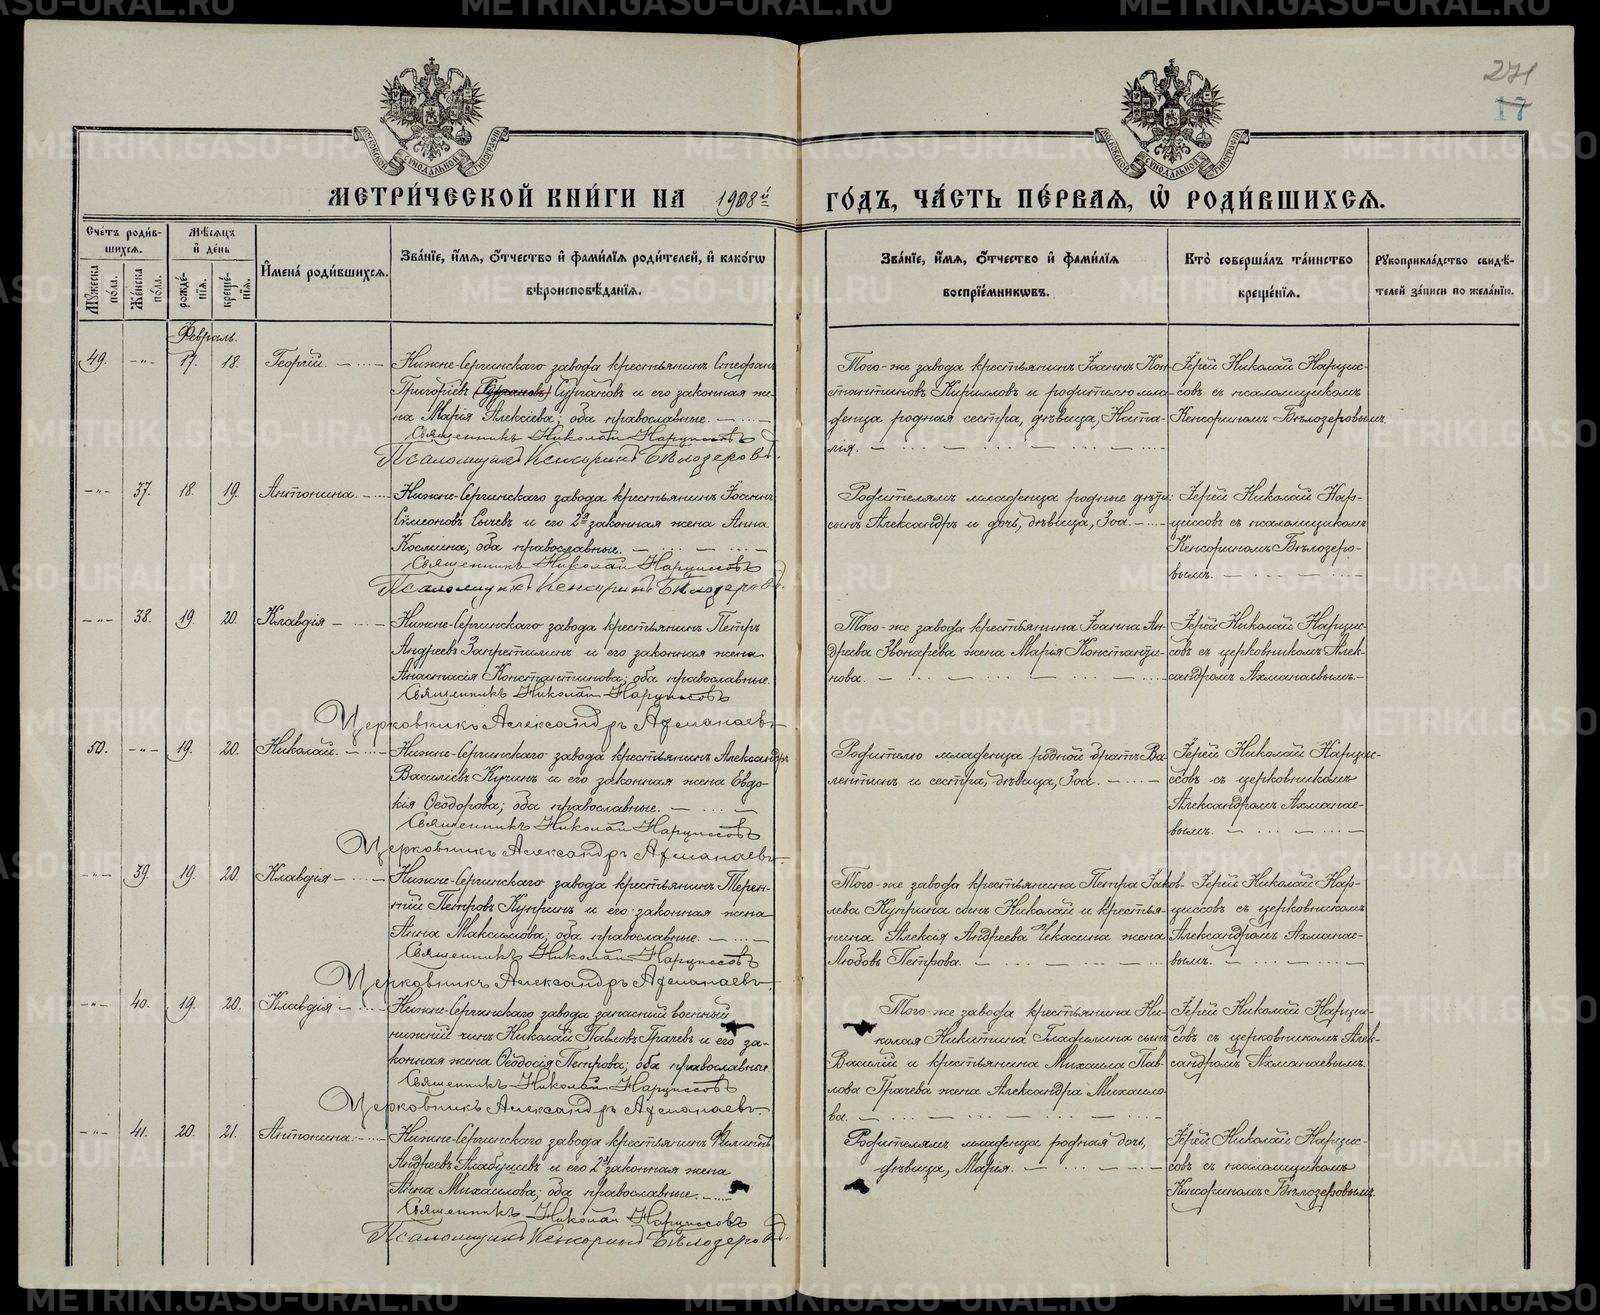 271
17
МОСКОВСКОЙ СѴНОДАЛЬНОЙ ТИПОГРАФІИ
МОСКОВСКОЙ СѴНОДАЛЬНОЙ ТИПОГРАФІИ
МЕТРИ́ЧЕСКОЙ КНИ́ГИ НА 1908й
ГО́ДЪ, ЧА́СТЬ ПЕ́РВАѦ, Ѡ҆ РОДИ́ВШИХСѦ.
Сче́тъ роди́в-
шихсѧ.
Мѹ́жеска по́ла.
Же́нска по́ла.
Мѣ́сѧцъ и҆ де́нь
рожде́-нїѧ.
креще́-нїѧ.
И҆мена̀ роди́вшихсѧ.
Зва́нїе, и҆́мѧ, ѻ҆́тчество и҆ фами́лїѧ роди́телей, и҆ како́гѡ
вѣроисповѣ́данїѧ.
Зва́нїе, и҆́мѧ, ѻ҆́тчество и҆ фами́лїѧ
воспрїе́мникѡвъ.
Кто̀ соверша́лъ та́инство
креще́нїѧ.
Рꙋкоприкла́дство свидѣ́-
телей за́писи по жела́нїю.
Февраль.
49. -"- 17. 18. Георгій.
Нижне-Сергинскаго завода крестьянинъ Стефанъ
Григоріевъ Сургановъ и его законная же-
на Марія Алексіева; оба православные.
Священникъ Николай Нарциссовъ
Псаломщикъ Кенсоринъ Бѣлозеровъ.
Того-же завода крестьянинъ Іоаннъ Кон-
стантиновъ Кирилловъ и родителю мла-
денца родная сестра, дѣвица, Ната-
лія.
Іерей Николай Нарцис-
совъ съ псаломщикомъ
Кенсориномъ Бѣлозеровымъ.
-"- 37. 18. 19. Антонина.
Нижне-Сергинскаго завода крестьянинъ Іоаннъ
Симеоновъ Сычевъ и его 2я законная жена Анна
Космина; оба православные.
Священникъ Николай Нарциссовъ
Псаломщикъ Кенсоринъ Бѣлозеровъ.
Родителямъ младенца родные дѣти:
сынъ Александръ и дочь, дѣвица, Зоя.
Іерей Николай Нар-
циссовъ съ псаломщикомъ
Кенсориномъ Бѣлозеро-
вымъ.
-"- 38. 19. 20. Клавдія
Нижне-Сергинскаго завода крестьянинъ Петръ
Андреевъ и его законная жена
Анастасія Константинова; оба православные.
Священникъ Николай Нарциссовъ
Церковникъ Александръ Ахманаевъ
Того-же завода крестьянина Іоанна Ан-
дреева Звонарева жена Марія Константи-
нова.
Іерей Николай Нарцис-
совъ съ церковникомъ Алек-
сандромъ Ахманаевымъ.
50. -"- 19. 20. Николай.
Нижне-Сергинскаго завода крестьянинъ Александръ
Василіевъ Кучинъ и его законная жена Евдо-
кія Ѳеодорова; оба православные.
Священникъ Николай Нарциссовъ
Церковникъ Александръ Ахманаевъ
Родителю младенца родной братъ Ва-
лентинъ и сестра, дѣвица, Зоя.
Іерей Николай Нарци-
ссовъ съ церковникомъ
Александромъ Ахманае-
вымъ.
-"- 39. 19. 20. Клавдія
Нижне-Сергинскаго завода крестьянинъ Терен-
тій Петровъ Купринъ и его законная жена
Анна Максимова; оба православные.
Священникъ Николай Нарциссовъ
Церковникъ Александръ Ахманаевъ
Того-же завода крестьянина Петра Іаков-
лева Куприна сынъ Николай и крестья-
нина Алексія Андреева Чекасина жена
Любовь Петрова.
Іерей Николай Нар-
циссовъ съ церковникомъ
Александромъ Ахманае-
вымъ.
-"- 40. 19. 20. Клавдія
Нижне-Сергинскаго завода запасный военный
нижній чинъ Николай Павловъ Грачевъ и его за-
конная жена Ѳеодосія Петрова; оба православные.
Священникъ Николай Нарциссовъ
Церковникъ Александръ Ахманаевъ
Того-же завода крестьянина Ни-
колая Никитина сынъ
Василій и крестьянина Михаила Пав-
лова Грачева жена Александра Михаило-
ва.
Іерей Николай Нарцис-
совъ съ церковникомъ Алек-
сандромъ Ахманаевымъ.
-"- 41. 20. 21. Антонина.
Нижне-Сергинскаго завода крестьянинъ Филиппъ
Андреевъ Алабушевъ и его 2я законная жена
Анна Михаилова; оба православные.
Священникъ Николай Нарциссовъ
Псаломщикъ Кенсоринъ Бѣлозеровъ.
Родителямъ младенца родная дочь,
дѣвица, Марія.
Іерей Николай Нарцис-
совъ съ псаломщикомъ
Кенсориномъ Бѣлозеровымъ.
METRIKI.GASO-URAL.RU